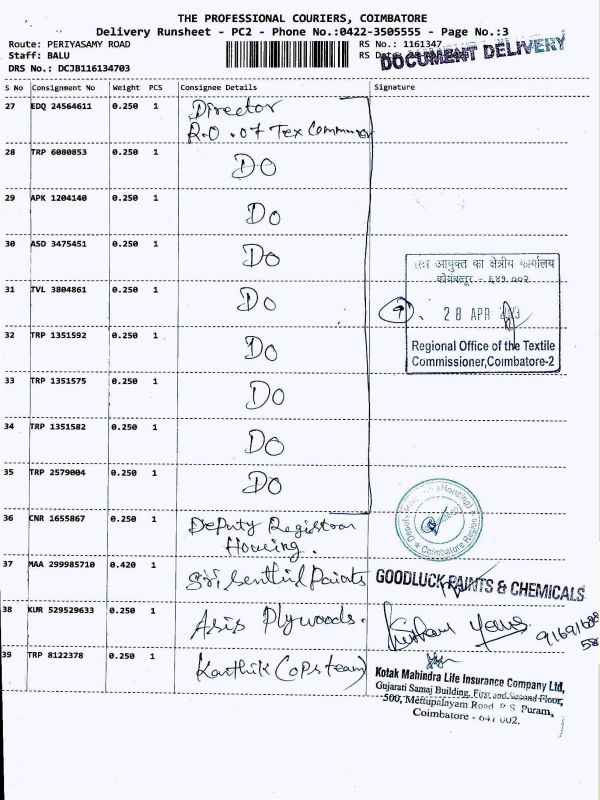 THE PROFESSIONAL COURIERS, COIMBATORE
Delivery Runsheet - PC2 - Phone No.:0422-3505555 - Page No.:3
Route: PERIYASAMY ROAD
Staff: BALU
DRS No.: DCJB116134703
RS No.: 1161347
RS
DOCUMENT DELIVERY
S No Consignment No Weight PCS Consignee Details Signature
27 EDQ 24564611 0.250 1 Director
R.O. of Tex Commner
28 TRP 6080853 0.250 1 DO
29 APK 1204140 0.250 1 DO
30 ASD 3475451 0.250 1 DO
31 TVL 3804861 0.250 1 DO
32 TRP 1351592 0.250 1 DO
33 TRP 1351575 0.250 1 DO
34 TRP 1351582 0.250 1 DO
35 TRP 2579004 0.250 1 DO
आयुक्त का क्षेत्रीय कार्यालय
कोयंबत्तूर - ६४१ ००२
9. 28 APR
Regional Office of the Textile
Commissioner, Coimbatore-2
36 CNR 1655867 0.250 1 Deputy Registrar
Housing.
(Housing)
Coimbatore Region
37 MAA 299985710 0.420 1 Sri Senthil Paints
GOODLUCK PAINTS & CHEMICALS
38 KUR 529529633 0.250 1 Asis Plywoods.
39 TRP 8122378 0.250 1 Karthik (OPS team)
Kotak Mahindra Life Insurance Company Ltd,
Gujarati Samaj Building, First and Second Floor,
500, Mettupalayam Road R S Puram,
Coimbatore - 641 002.